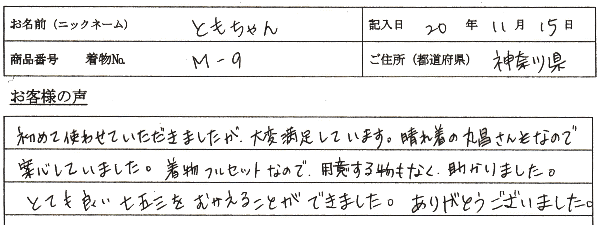 お名前（ニックネーム） ともちゃん 記入日 20 年 11 月 15 日
商品番号 着物No. M-9 ご住所（都道府県） 神奈川県
お客様の声
初めて使わせていただきましたが、大変満足しています。晴れ着の丸昌さんとなので
安心していました。着物フルセットなので、用意する物もなく、助かりました。
とても良い七五三をむかえることができました。ありがとうございました。